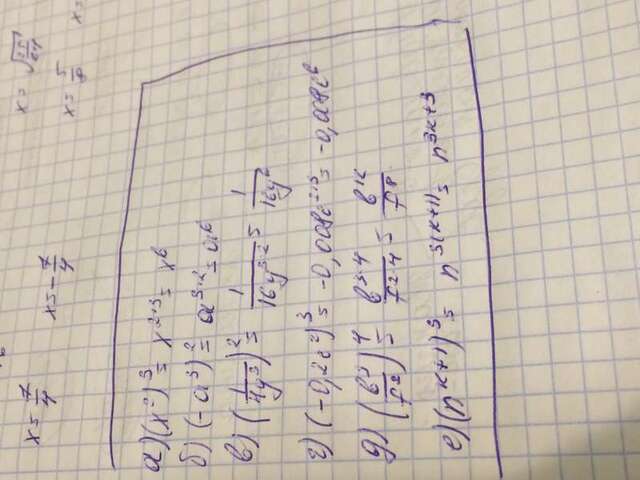 x = 7/4 x = -7/4 x = √(25/64) x = 5/8
а) (x²)³ = x²·³ = x⁶
б) (-a³)² = a³·² = a⁶
в) (1/4y³)² = 1/16y³·² = 1/16y⁶
г) (-0,2c²)³ = -0,008c²·³ = -0,008c⁶
д) (b³/c²)⁴ = b³·⁴/c²·⁴ = b¹²/c⁸
е) (n^x+1)³ = n^3(x+1) = n^3x+3